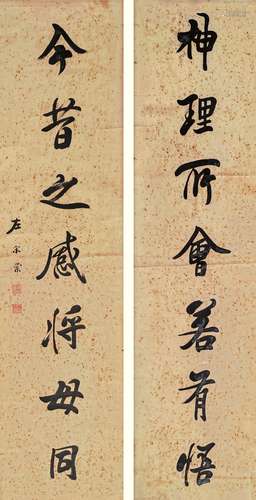 神理所會若有悟
今昔之感將毋同
左宗棠